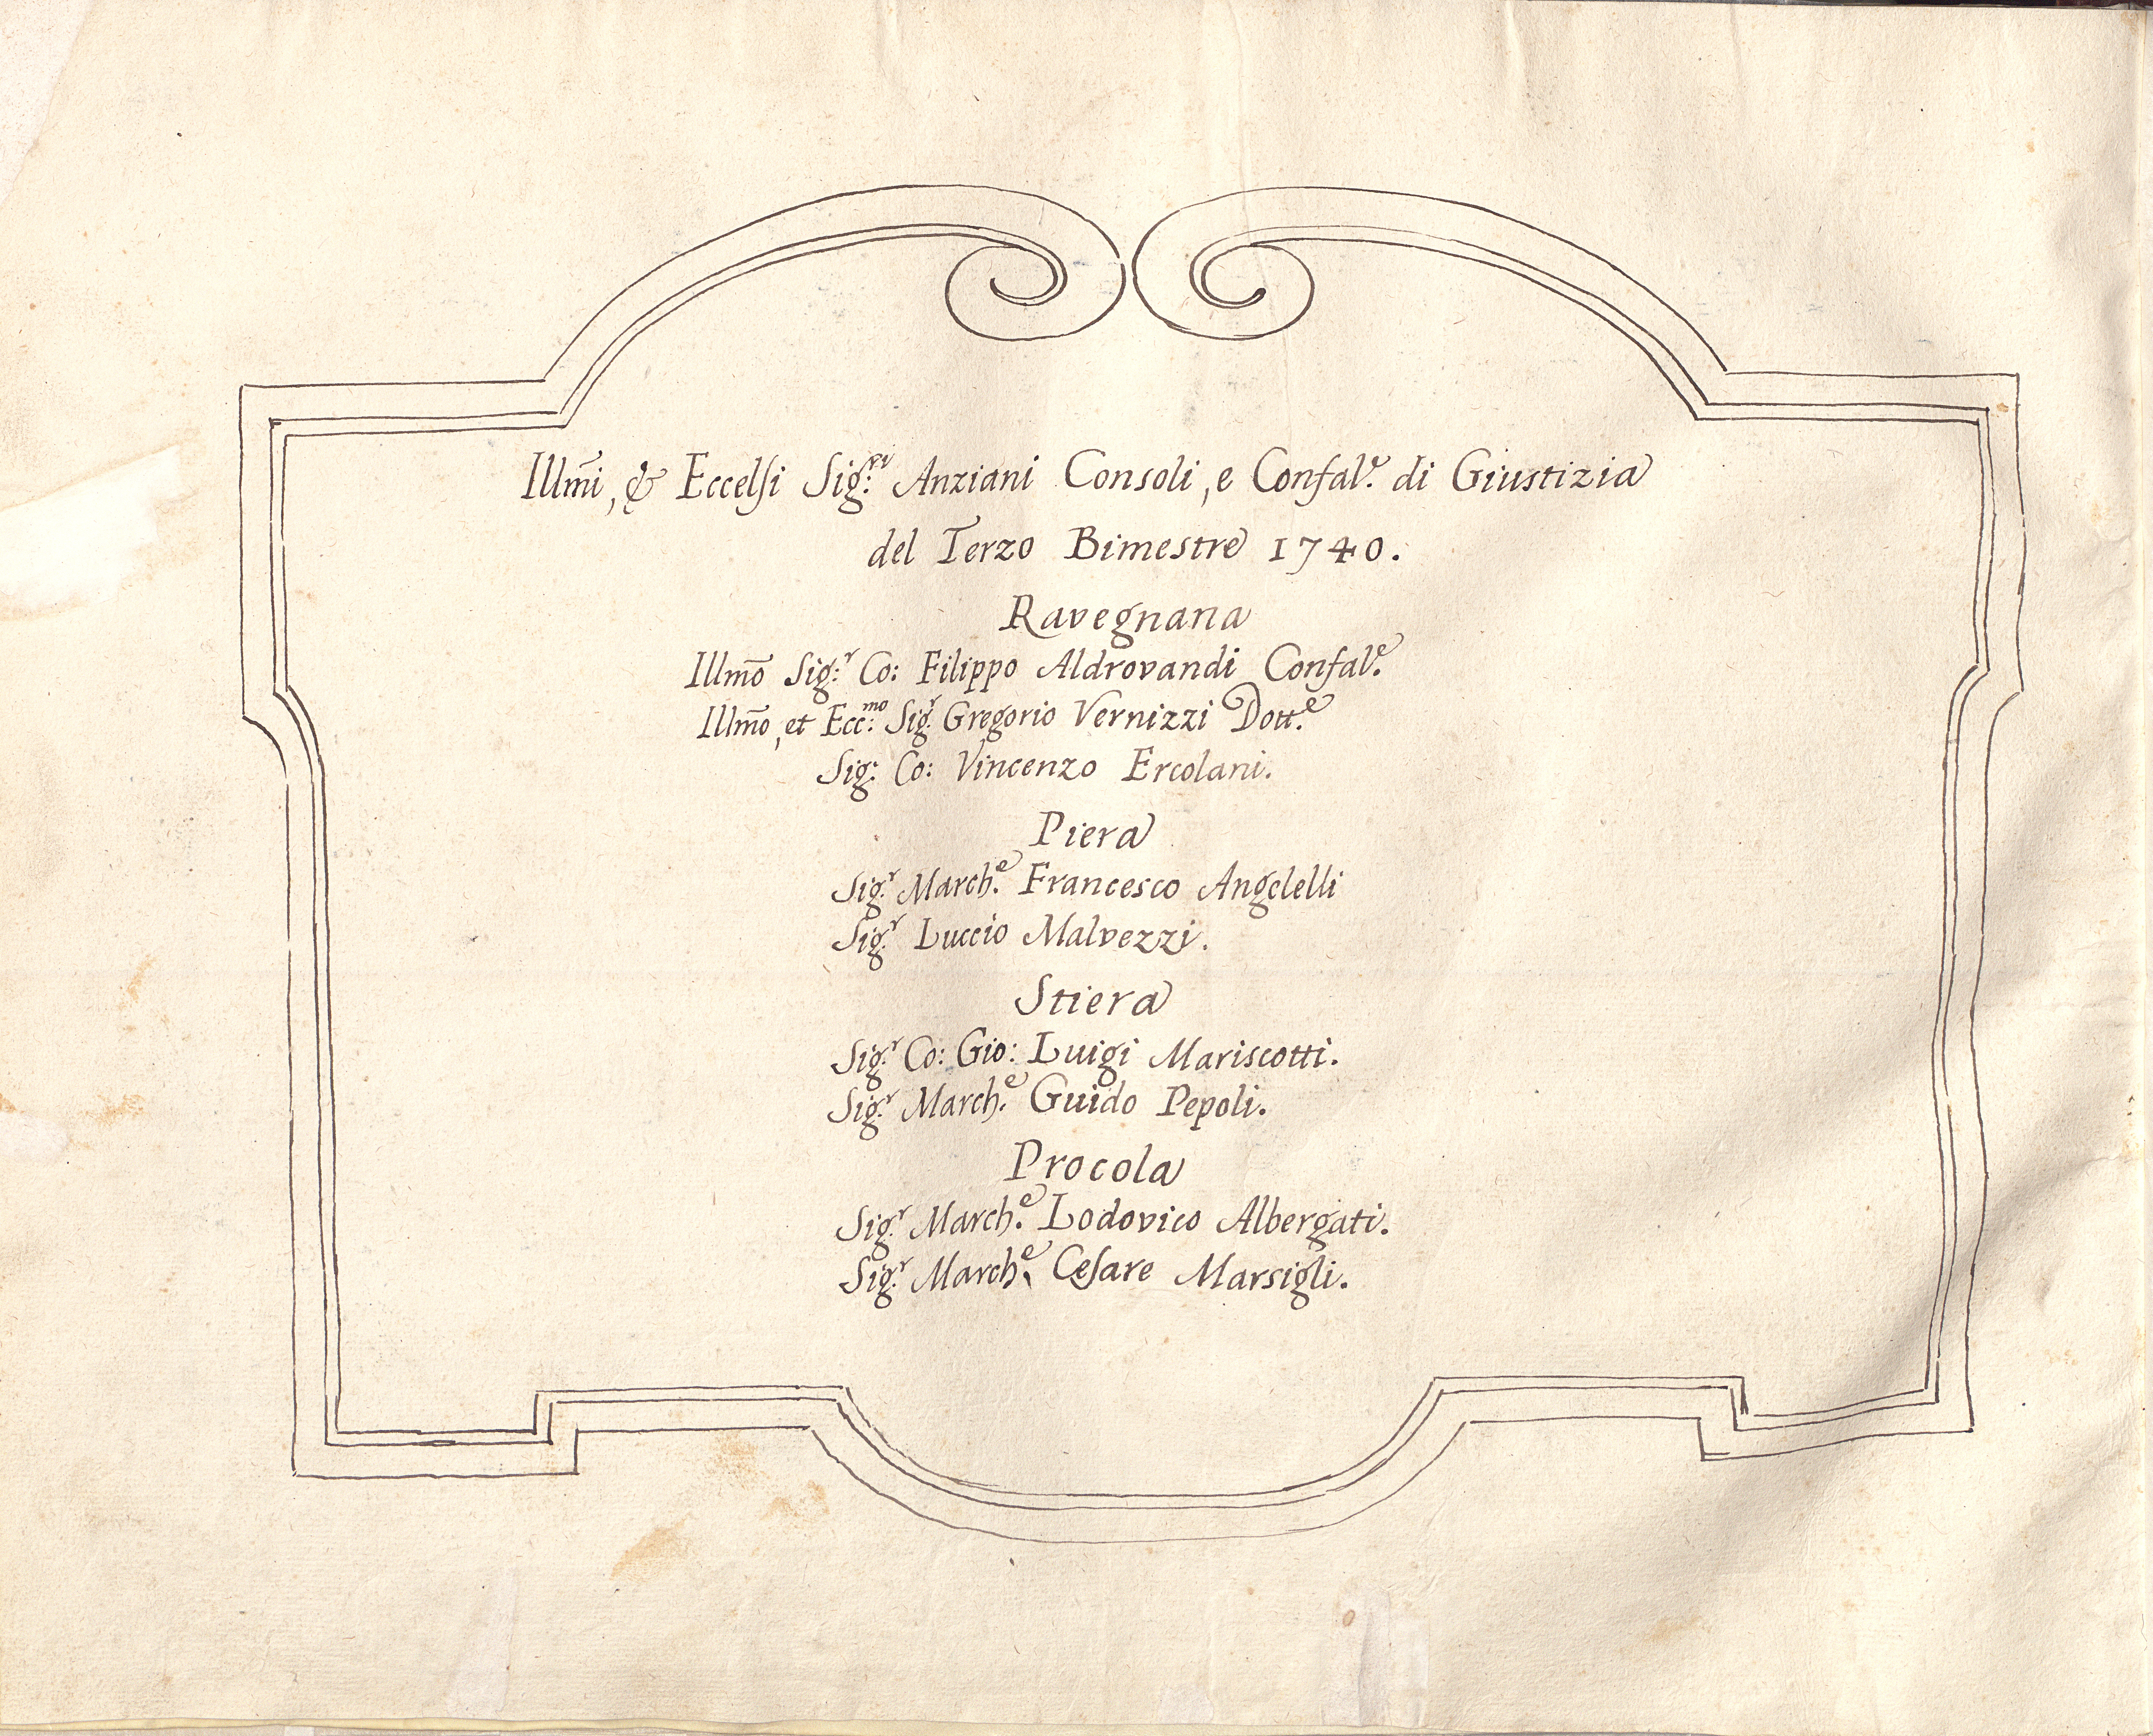 Illm̃i, & Eccelsi Sig:ri Anziani Consoli, e Confal.e di Giustizia
del Terzo Bimestre 1740.
Ravegnana
Illmõ Sig:r Co: Filippo Aldrovandi Confal.e
Illmõ, et Ecc:mo Sig.r Gregorio Vernizzi Dott.e
Sig: Co: Vincenzo Ercolani.
Piera
Sig.r March.e Francesco Angelelli
Sig.r Luccio Malvezzi.
Stiera
Sig.r Co: Gio: Luigi Mariscotti.
Sig.r March.e Guido Pepoli.
Procola
Sig.r March.e Lodovico Albergati.
Sig.r March.e Cesare Marsigli.